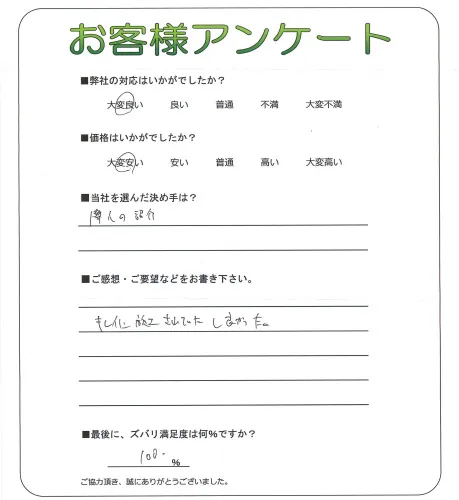 お客様アンケート
■弊社の対応はいかがでしたか？
大変良い 良い 普通 不満 大変不満
■価格はいかがでしたか？
大変安い 安い 普通 高い 大変高い
■当社を選んだ決め手は？
人の紹介
■ご感想・ご要望などをお書き下さい。
キレイに施工
■最後に、ズバリ満足度は何%ですか？
100 %
ご協力頂き、誠にありがとうございました。